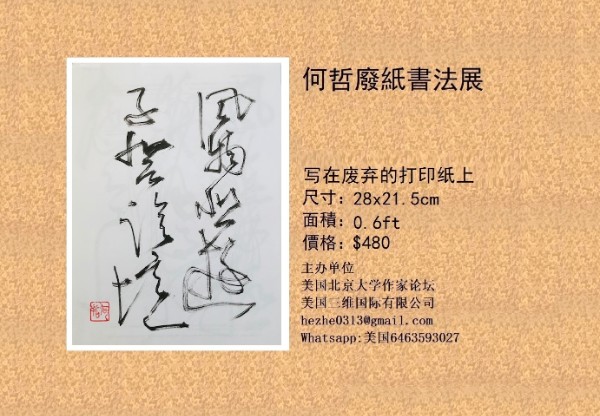 何哲廢紙書法展
写在废弃的打印纸上
尺寸：28x21.5cm
面積：0.6ft
價格：$480
主办单位
美国北京大学作家论坛
美国三维国际有限公司
hezhe0313@gmail.com
Whatsapp:美国6463593027